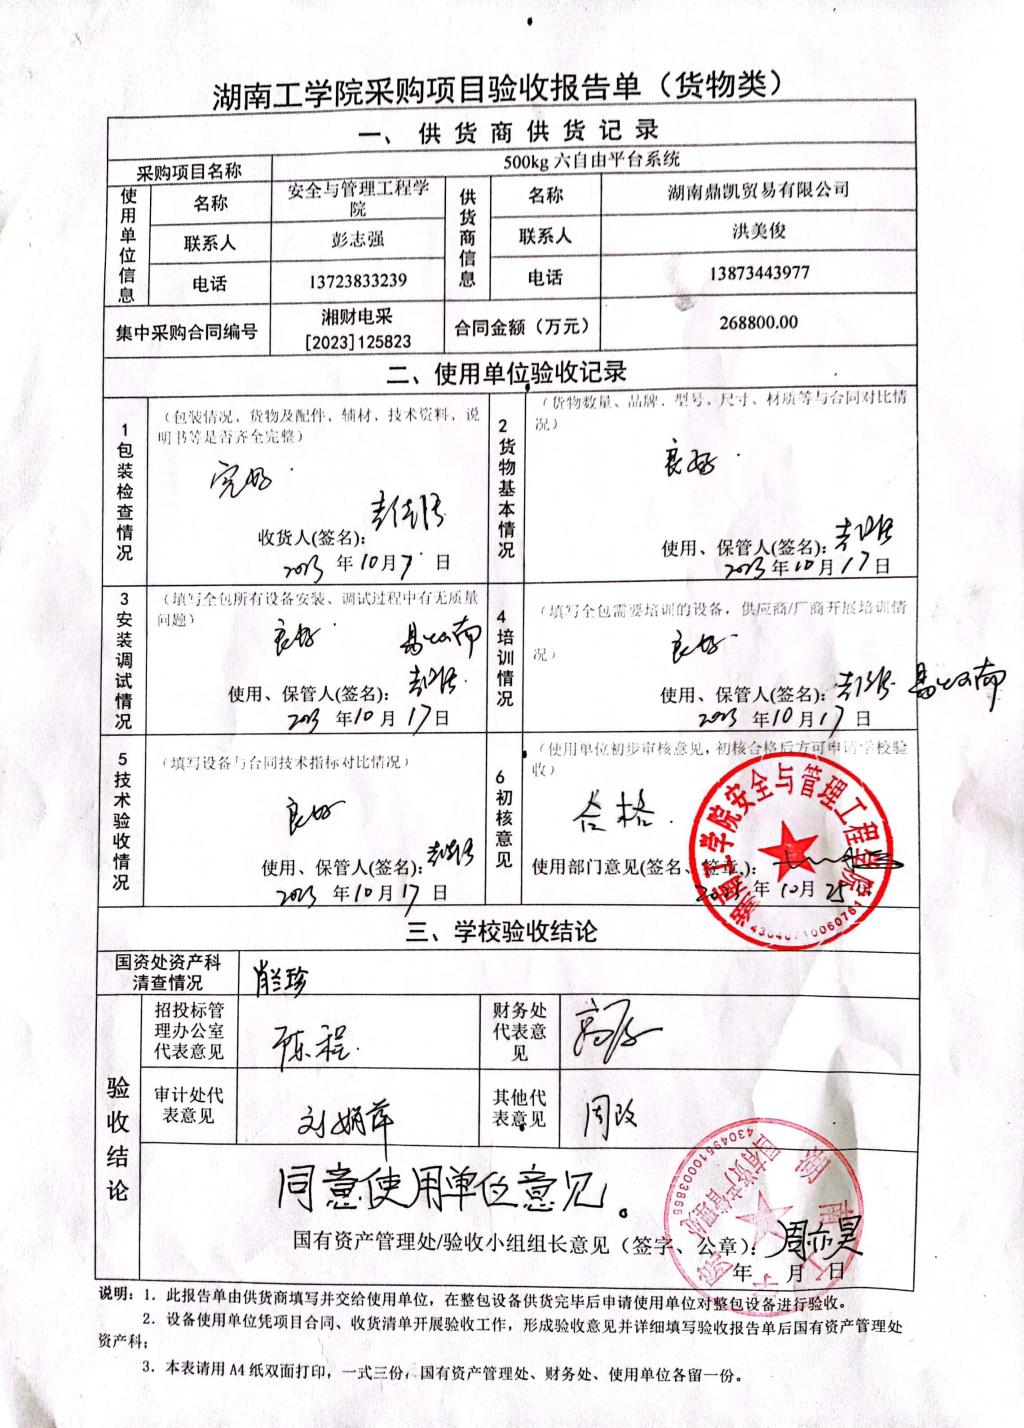 湖南工学院采购项目验收报告单（货物类）
一、供货商供货记录
采购项目名称
500kg 六自由平台系统
使用单位信息
名称
安全与管理工程学
院
供货商信息
名称
湖南鼎凯贸易有限公司
联系人
彭志强
联系人
洪美俊
电话
13723833239
电话
13873443977
集中采购合同编号
湘财电采
[2023]125823
合同金额（万元）
268800.00
二、使用单位验收记录
1包装检查情况
（包装情况、货物及配件、辅材、技术资料、说
明书等是否齐全完整）
完好
收货人(签名):
2023年10月7日
2货物基本情况
（货物数量、品牌、型号、尺寸、材质等与合同对比情
况）
良好
使用、保管人(签名):
2023年10月17日
3安装调试情况
（填写全包所有设备安装、调试过程中有无质量
问题）
良好
使用、保管人(签名):
2023年10月17日
4培训情况
（填写全包需要培训的设备，供应商/厂商开展培训情
况）
良好
使用、保管人(签名):
2023年10月17日
5技术验收情况
（填写设备与合同技术指标对比情况）
良好
使用、保管人(签名):
2023年10月17日
6初核意见
（使用单位初步审核意见，初核合格后方可申请学校验
收）
合格
使用部门意见(签名、签章):
2023年10月25日
湖南工学院安全与管理工程学院
三、学校验收结论
国资处资产科
清查情况
肖兰珍
验收结论
招投标管
理办公室
代表意见
陈程
财务处
代表意
见
审计处代
表意见
刘娟萍
其他代
表意见
周政
同意使用单位意见。
国有资产管理处/验收小组组长意见（签字、公章）：
周亦昊
年 月 日
湖南工学院
国有资产管理处
43049510003865
说明：1．此报告单由供货商填写并交给使用单位，在整包设备供货完毕后申请使用单位对整包设备进行验收。
2．设备使用单位凭项目合同、收货清单开展验收工作，形成验收意见并详细填写验收报告单后国有资产管理处
资产科；
3．本表请用 A4 纸双面打印，一式三份，国有资产管理处、财务处、使用单位各留一份。